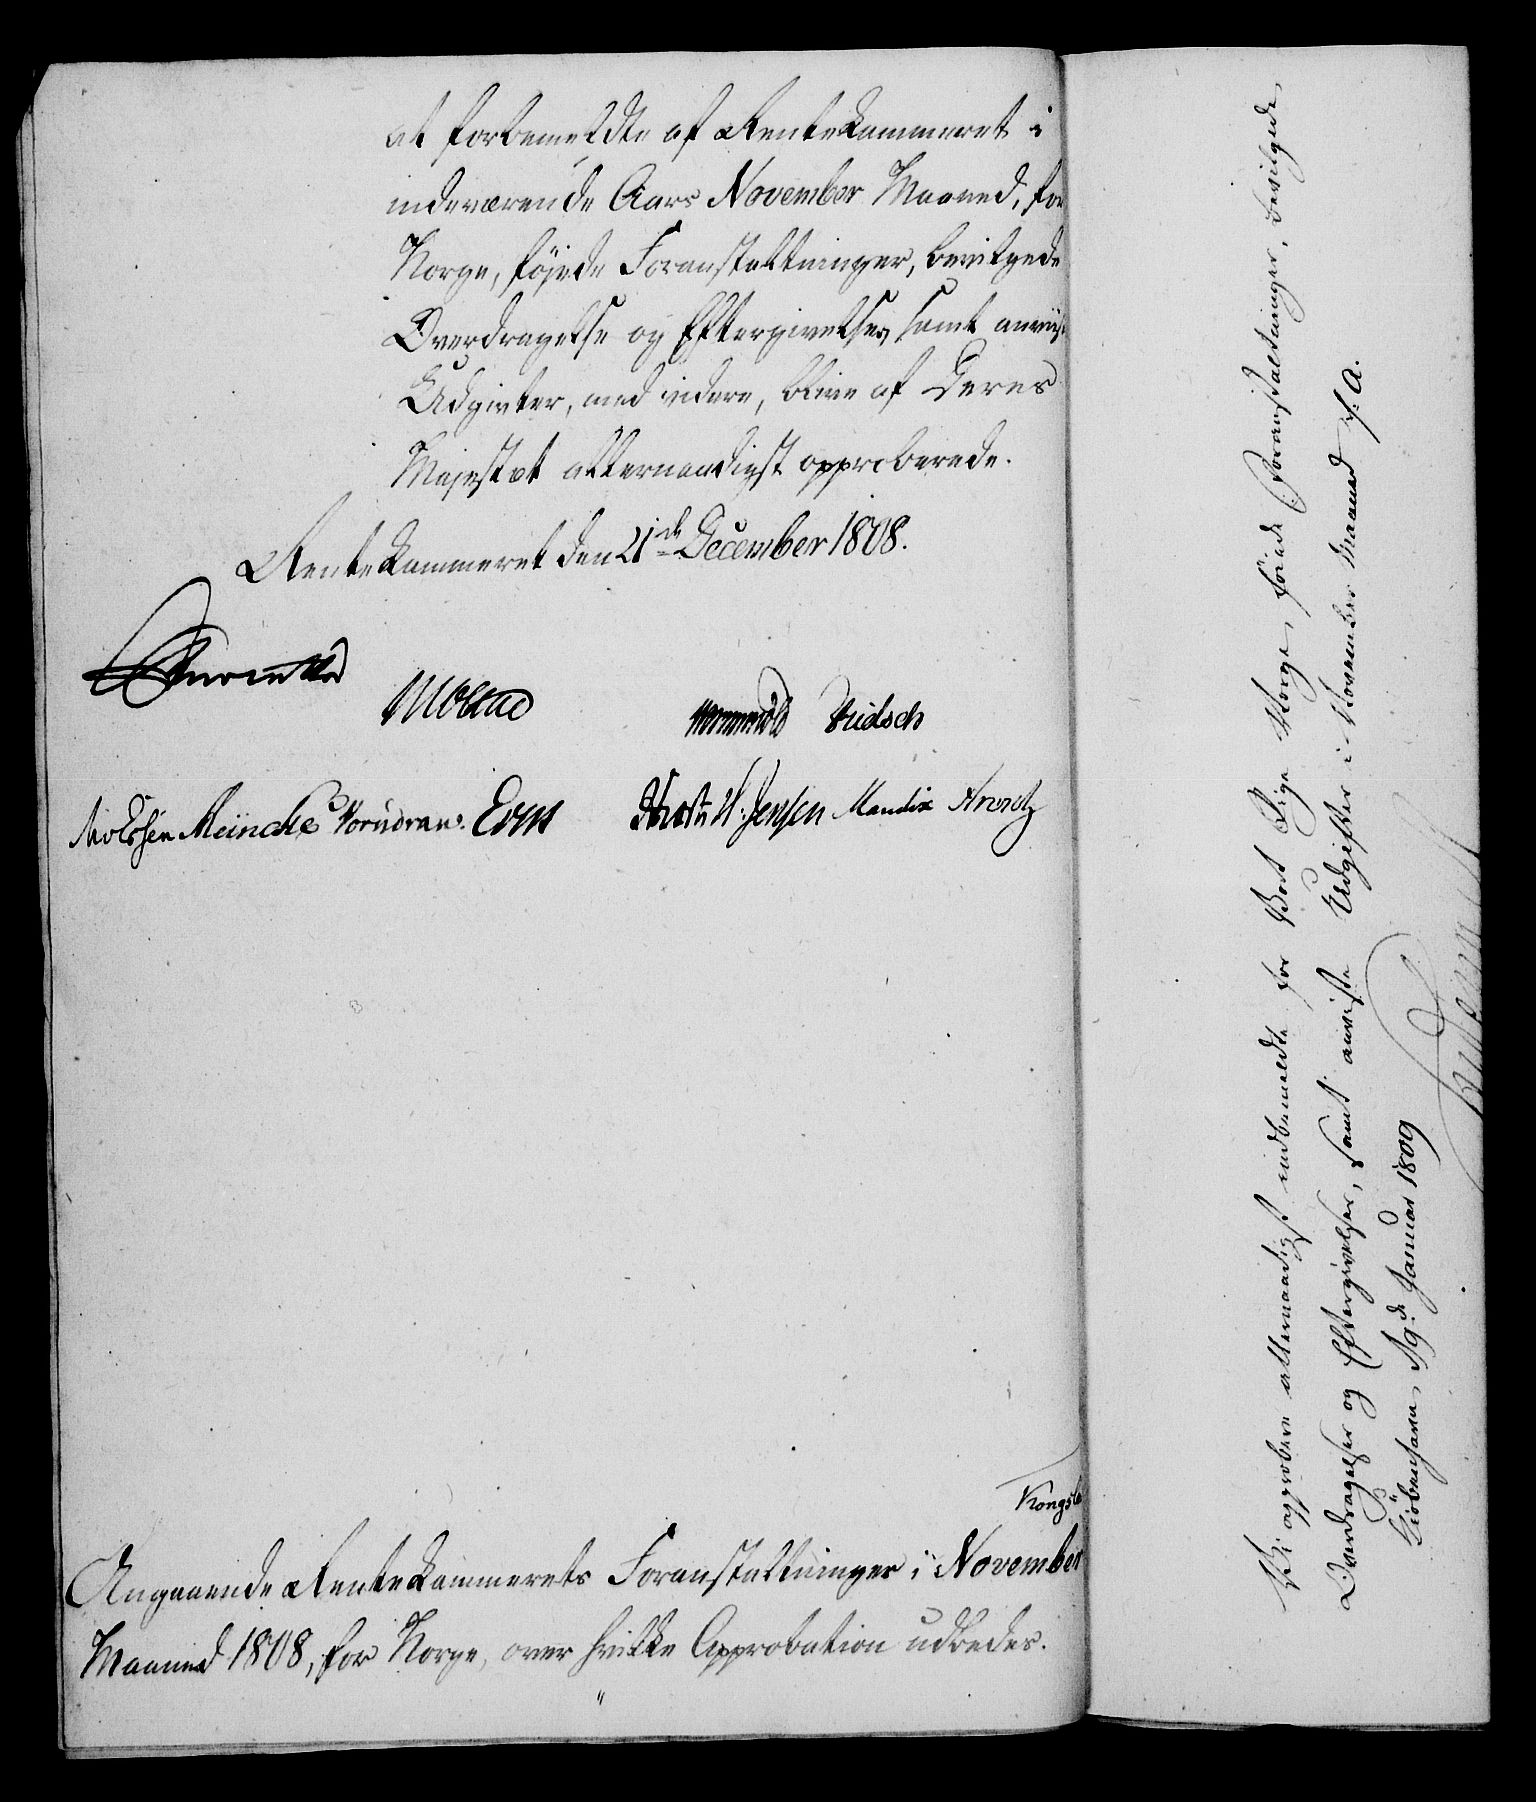 at forbemeldte af Rentekammeret i
indeværende Aars November Maaned, for
Norge, föjede Foranstaltninger, bevilgede
Overdragelse og Eftergivelser, samt anviiste
Udgivter, med videre, blive af Deres
Majestæt allernaadigst approberede.
Rentekammeret den 21de December 1808.
Meincke Vorndran
W. Jensen Mandix Arentz
Kongsb
Angaaende Rentekammerets Foranstaltninger i November
Maaned 1808, for Norge, over hvilke Approbation udbedes.
Vi approbere allernaadigst indbemeldte for Vort Rige Norge, föiede Foranstaltninger, bevilgede
Overdragelser og Eftergivelser, samt anviiste Udgifter i November Maaned f: A.
Kiöbenhavn, 19de Januar 1809